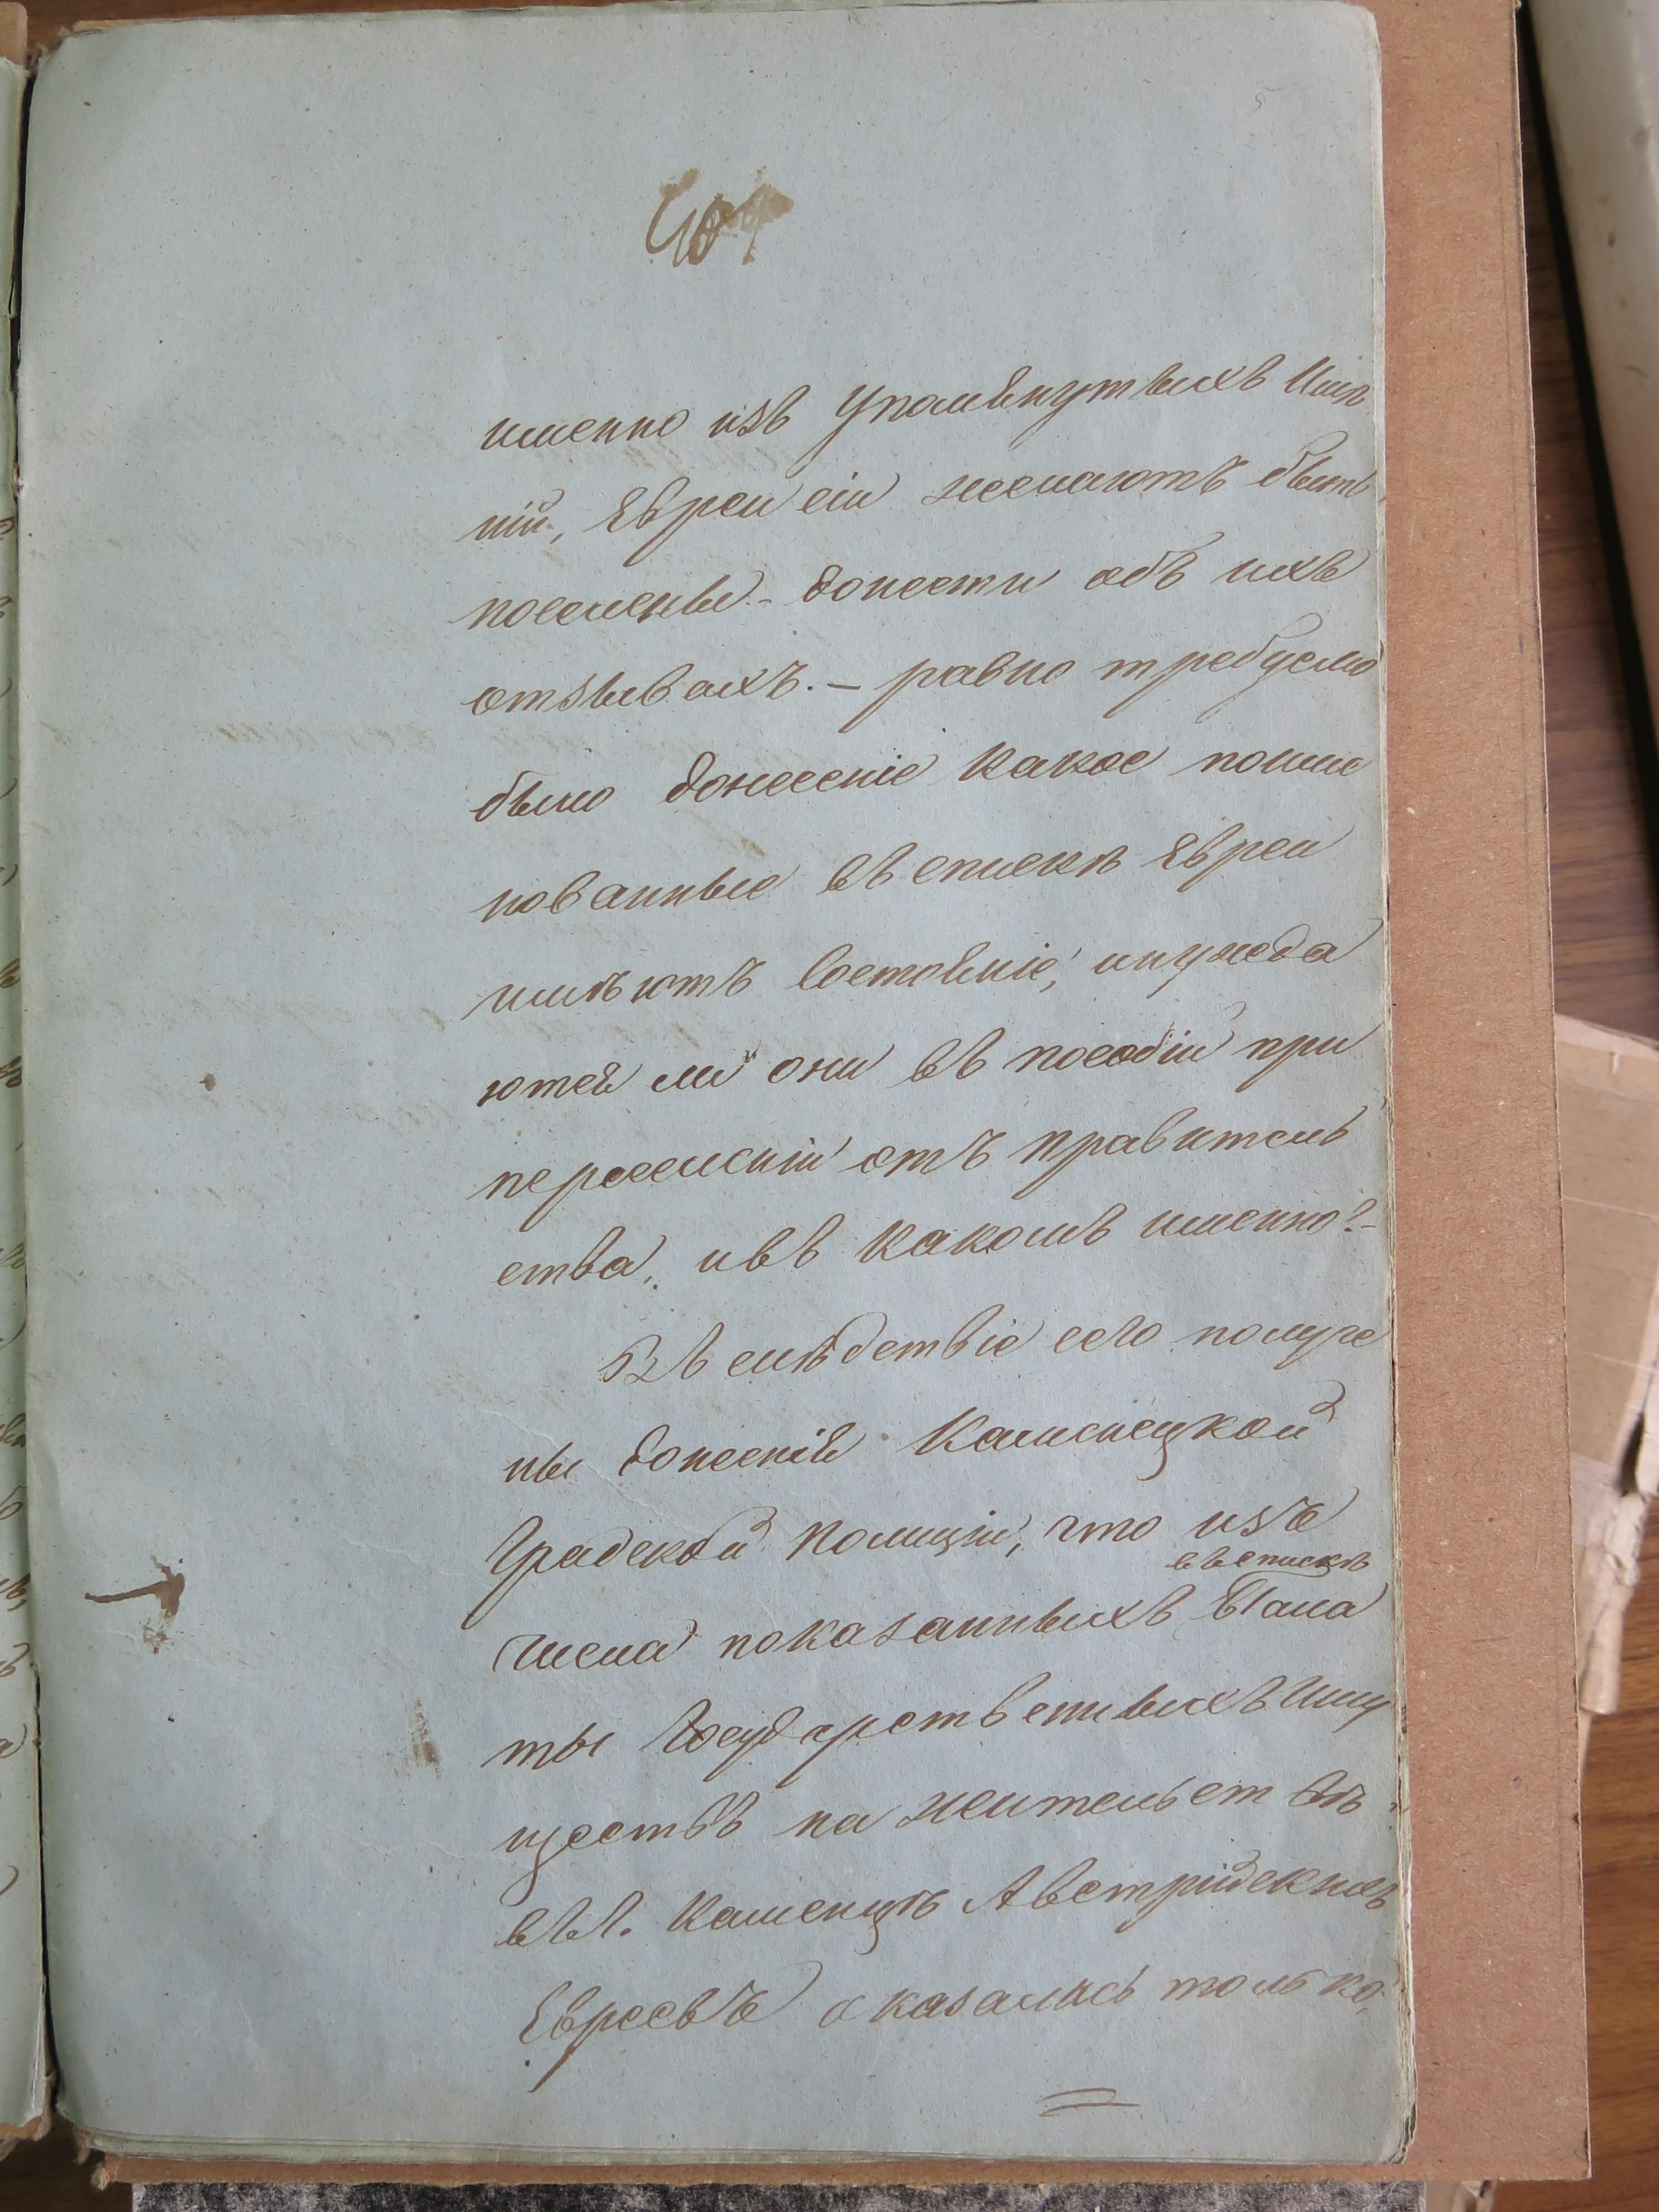 5
404
именно изъ упомянутыхъ Имѣ
ній, Евреи сіи желаютъ быть
поселены – донести объ ихъ
отзывахъ. – равно требуемо
было донесеніе какое поиме
нованные въ спискѣ Евреи
имѣютъ Состояніе, и нужда
ются ли они въ пособіи при
переселеніи отъ правитель
ства, и въ какомъ именно? –
Въ слѣдствіе сего получе
ны донесенія Каменецкой
Градской Полиціи, что изъ
въ спискѣ
числа показанныхъ Пала
ты Государственныхъ Иму
ществъ на жительствѣ
въ г. Каменцѣ Австрійскихъ
Евреевъ оказались только,